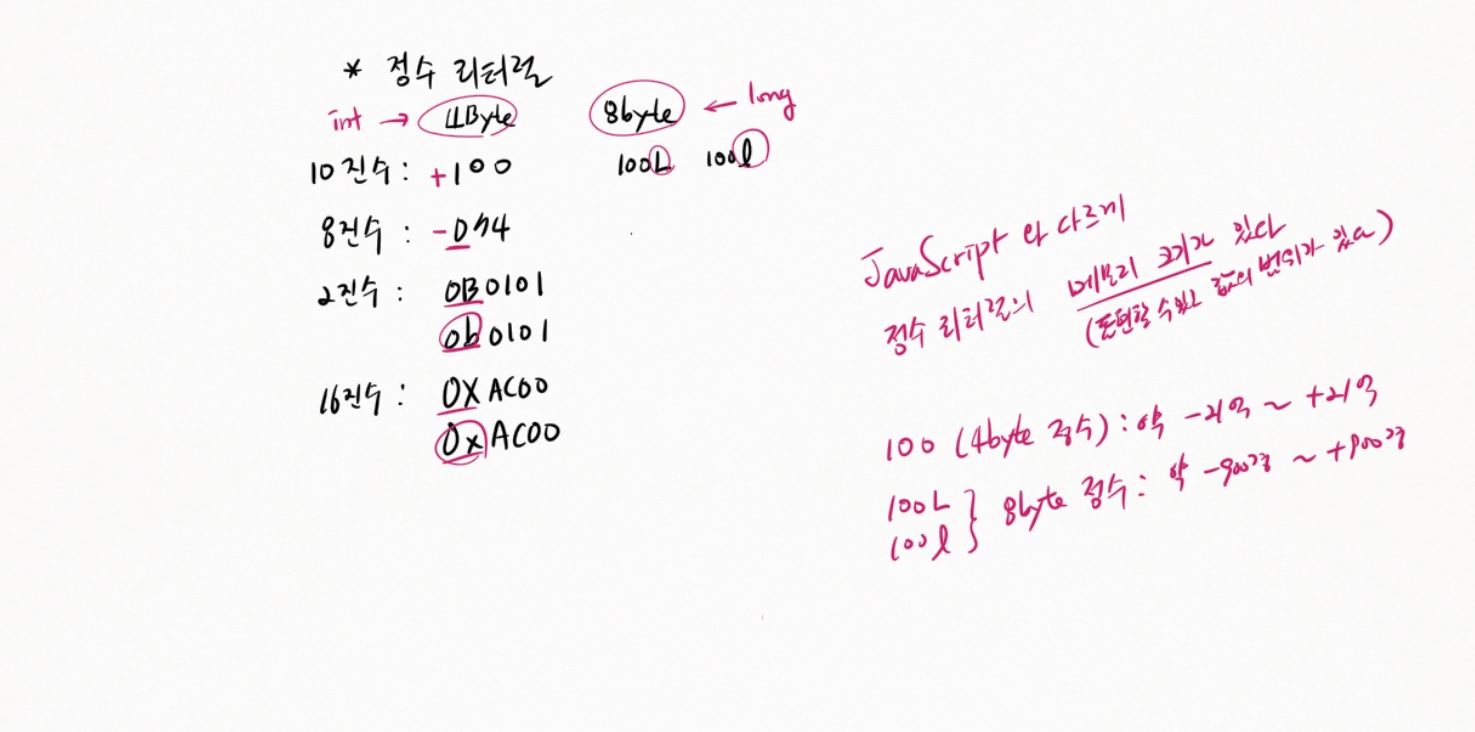 * 정수 리터럴
int → 4Byte 8byte ← long
10진수 : +100 100L 100l
8진수 : -0144
2진수 : 0B0101
0b0101
16진수 : 0XAC00
0xAC00
JavaScript 와 다르게
정수 리터럴의 메모리 크기가 있다
(표현할 수 있는 값의 범위가 있다)
100 (4byte 정수) : 약 -21억 ~ +21억
100L } 8byte 정수 : 약 -900경 ~ +900경
100l